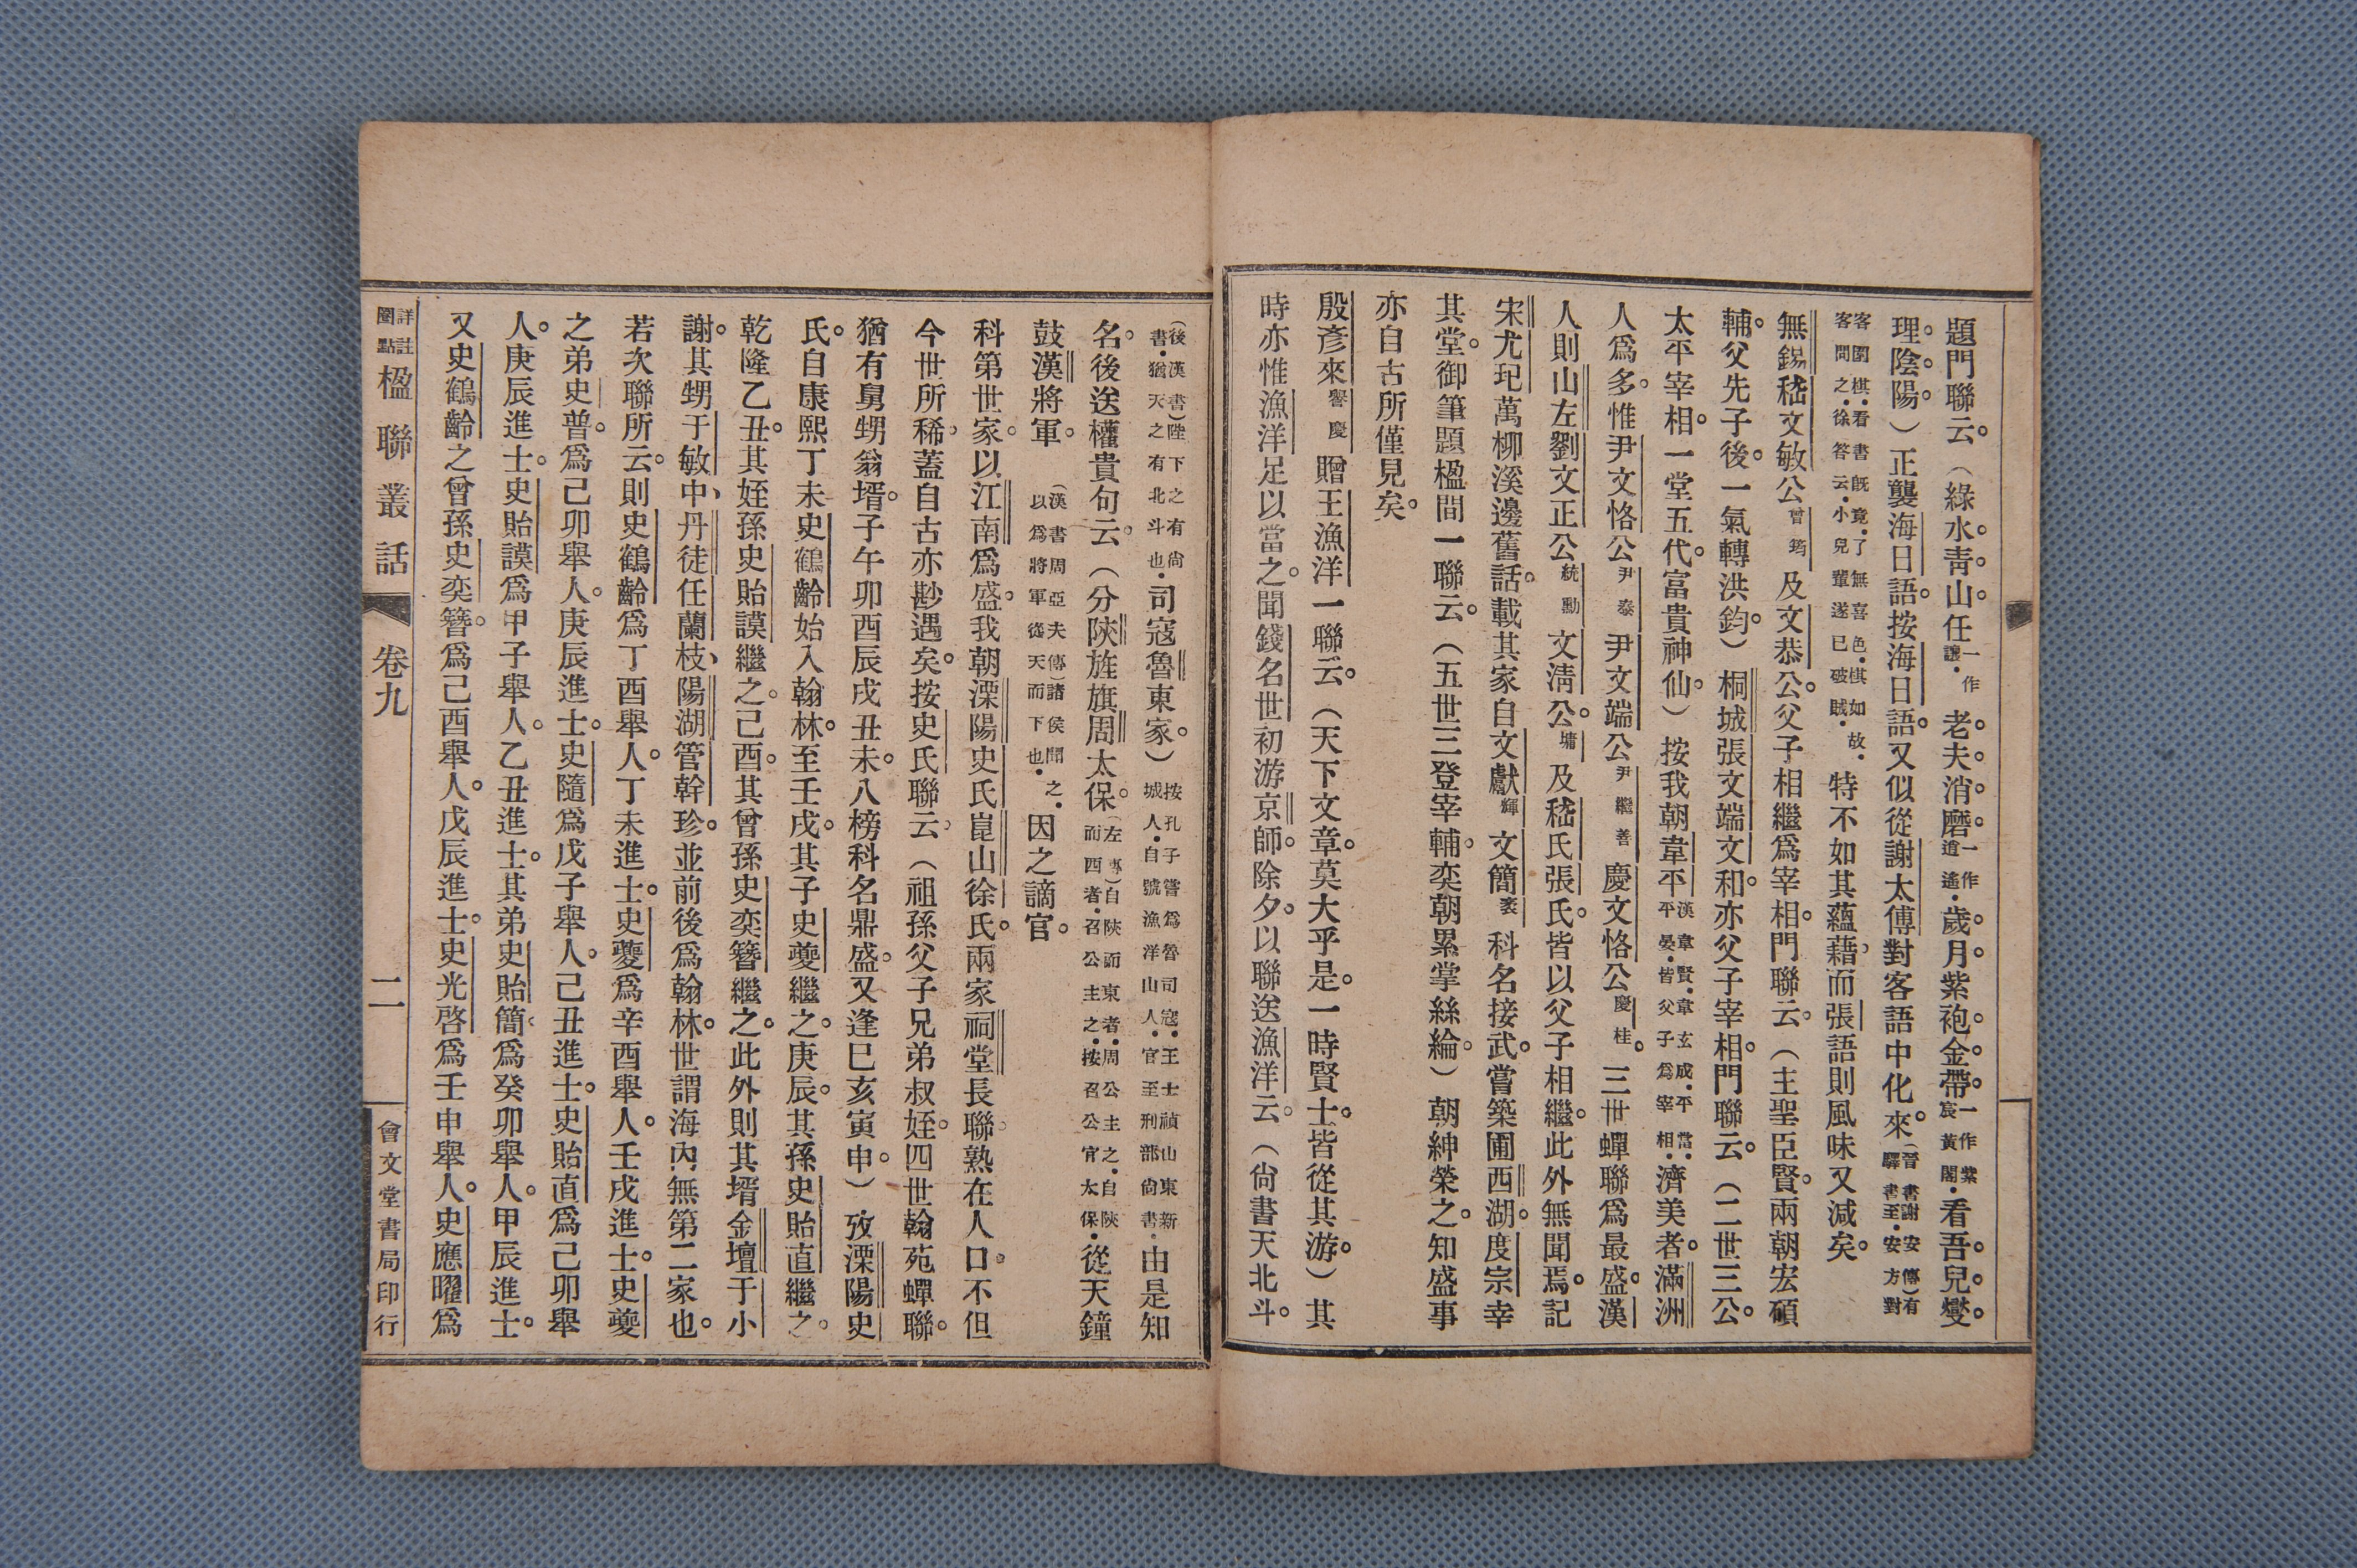 題門聯云。（綠水。青。山。任一作讓。老。夫。消。磨。一作道遙。歲。月。紫袍。金。帶。一作紫宸黃閣。看吾。兒。燮。
理。陰。陽。）正襲海日語。按海日語。又似從謝太傅對客語中化來。（晉書謝安傳）有驛書至。安方對
客圍棋。看書既竟。了無喜色。棋如故。客問之。徐答云。小兒輩遂已破賊。特不如其蘊藉。而張語則風味又減矣。
無錫嵇文敏公曾筠及文恭公。父子相繼爲宰相。門聯云。（主聖臣賢。兩朝宏碩
輔。父先子後。一氣轉洪鈞。）桐城張文端文和。亦父子宰相。門聯云。（二世三公。
太平宰相。一堂五代。富貴神仙。）按我朝韋平漢韋賢。韋玄成。平當。平晏。皆父子爲宰相。濟美者。滿洲
人爲多。惟尹文恪公尹泰尹文端公尹繼善慶文恪公慶桂。三世蟬聯爲最盛。漢
人則山左劉文正公統勳文清公。墉及嵇氏張氏。皆以父子相繼。此外無聞焉。記
宋尤玘萬柳溪邊舊話。載其家自文獻輝文簡袤科名接武。嘗築圃西湖。度宗幸
其堂。御筆題楹間一聯云。（五世三登宰輔。奕朝累掌絲綸。）朝紳榮之。知盛事
亦自古所僅見矣。
殷彥來譽慶贈王漁洋一聯云。（天下文章。莫大乎是。一時賢士。皆從其游。）其
時亦惟漁洋足以當之。聞錢名世初游京師。除夕。以聯送漁洋云。（尙書天北斗。
（後漢書）陛下之有尙書。猶天之有北斗也。司寇魯東家。）按孔子嘗爲魯司寇。王士禎山東新城人。自號漁洋山人。官至刑部尙書。由是知
名。後送權貴句云。（分陝旌旗周太保。（左傳）自陝而東者。周公主之。自陝而西者。召公主之。按召公官太保。從天鐘
鼓漢將軍。（漢書周亞夫傳）諸侯聞之。以爲將軍從天而下也。因之謫官。
科第世家。以江南爲盛。我朝溧陽史氏崑山徐氏。兩家祠堂長聯。熟在人口。不但
今世所稀。蓋自古亦尠遇矣。按史氏聯云。（祖孫父子兄弟叔姪。四世翰苑蟬聯。
猶有舅甥翁壻。子午卯酉辰戌丑未。八榜科名鼎盛。又逢巳亥寅申。）攷溧陽史
氏。自康熙丁未史鶴齡始入翰林。至壬戌。其子史夔繼之。庚辰。其孫史貽直繼之。
乾隆乙丑。其姪孫史貽謨繼之。己酉。其曾孫史奕簪繼之。此外則其壻金壇于小
謝。其甥于敏中、丹徒任蘭枝、陽湖管幹珍。並前後爲翰林。世謂海內無第二家也。
若次聯所云。則史鶴齡爲丁酉舉人。丁未進士。史夔爲辛酉舉人。壬戌進士。史夔
之弟史普。爲己卯舉人。庚辰進士。史隨爲戊子舉人。己丑進士。史貽直爲己卯舉
人。庚辰進士。史貽謨爲甲子舉人。乙丑進士。其弟史貽簡。爲癸卯舉人。甲辰進士。
又史鶴齡之曾孫史奕簪。爲己酉舉人。戊辰進士。史光啓爲壬申舉人。史應曜爲
詳註圈點 楹聯叢話 卷九 二 會文堂書局印行